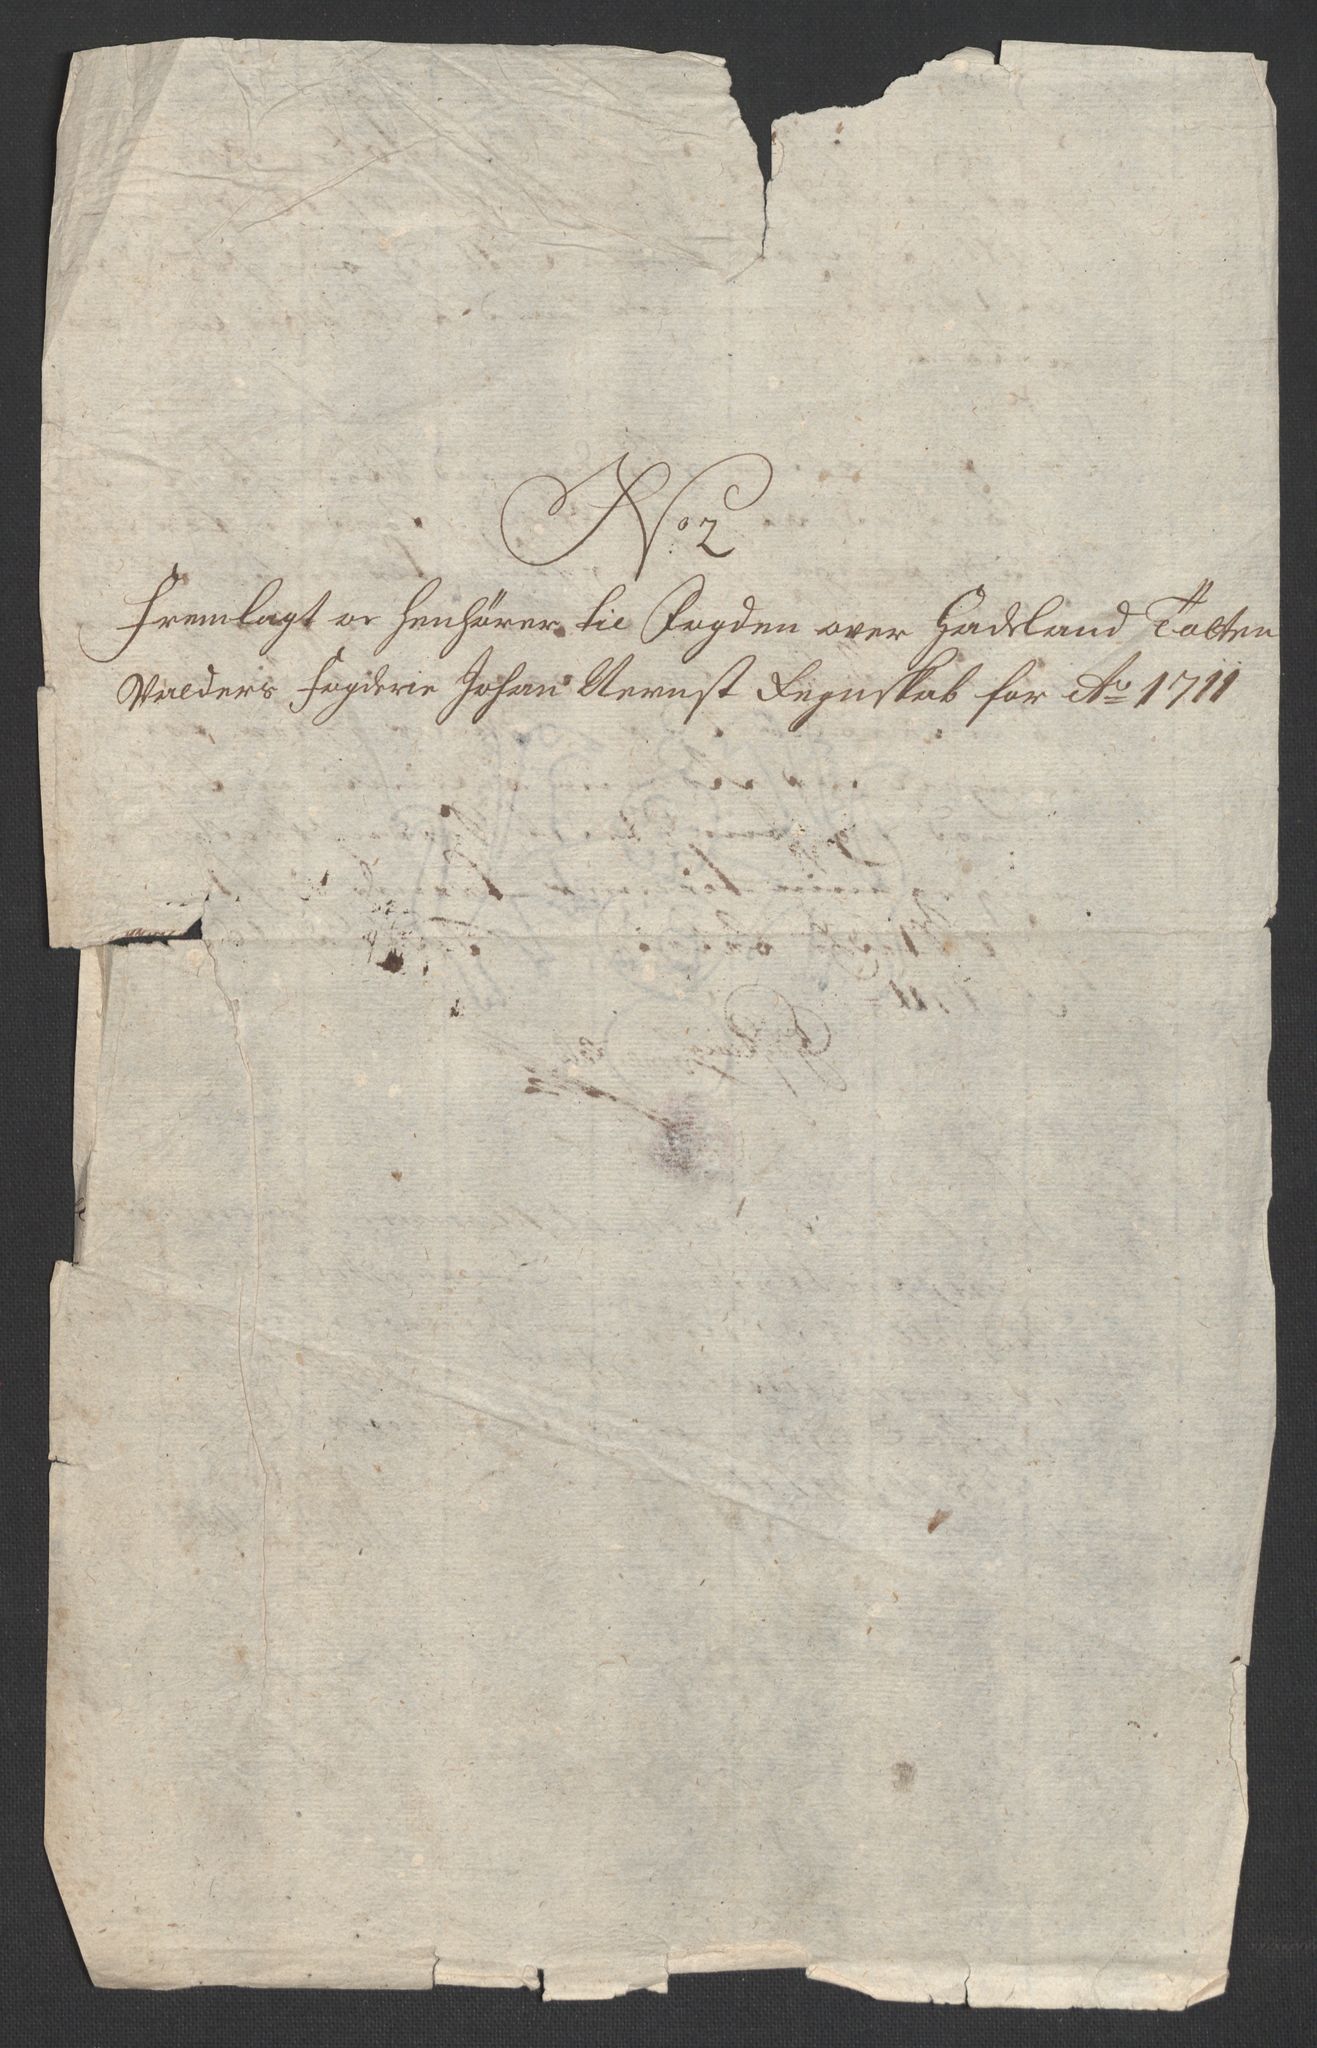 No 2
Fremlagt oc henhörer til Fogden over Hadeland Totten
Valders Fogderie Johan Wernst Regnskab for Ao 1711